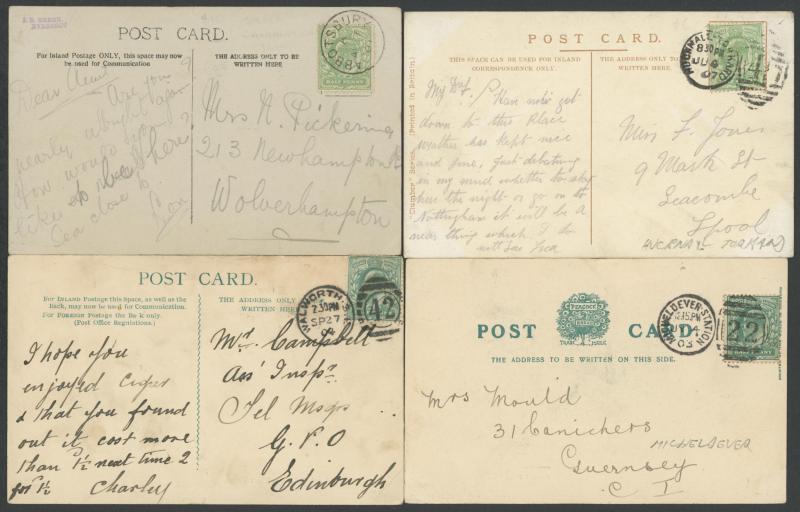 POST CARD.
For Inland Postage ONLY, this space may now
be used for Communication
THE ADDRESS ONLY TO BE
WRITTEN HERE.
ABBOTSBURY
HALF PENNY
Dear Aunt
Are you
nearly
How would you
like to be here?
Sea close by
Mrs N. Pickering
213 Newhampton
Wolverhampton
POST CARD.
THIS SPACE CAN BE USED FOR INLAND
CORRESPONDENCE ONLY.
THE ADDRESS ONLY
WRITTEN
"Clumber" Series. (Printed in Britain).
8 30 PM
JU 6
07
Have now got
down to this Place
weather has kept nice
and fine, just debating
in my mind whether to stay
here the night or go on to
Nottingham it will be a
near thing which I do
Miss F. Jones
9 Mark St
Seacombe
L'pool
POST CARD.
FOR INLAND Postage this Space, as well as the
Back, may now be used for Communication.
FOR FOREIGN Postage the Back only.
(Post Office Regulations.)
THE ADDRESS ONLY
WRITTEN
WALWORTH
2.30PM
SP 27
04
42
I hope you
enjoyed
& that you found
out it cost more
than 1/2 next time 2
for 1/2 Charley
Mr. Campbell
Asst Inspr.
Tel Msgs
G.P.O
Edinburgh
POST CARD.
PEACOCK
TRADE MARK
THE ADDRESS TO BE WRITTEN ON THIS SIDE.
MICHELDEVER STATION
12.15PM
03
22
HALF PENNY
Mrs Mould
31 Canichers
MICHELDEVER
Guernsey
C I